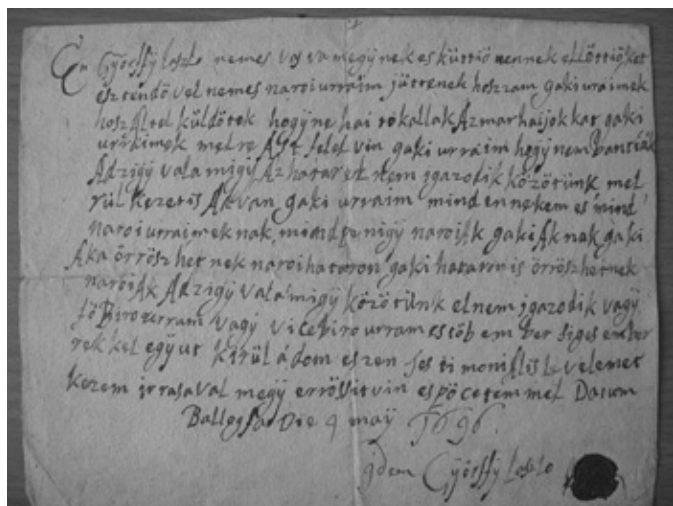 En Györffÿ loszlo nemes vas va megÿnek esküttiö nennek ellöttiö ket
esztendö vel nemes naroi urraim jüttenek hoszzam gaki uraimek
hosz Altel küldötek hogÿ ne hai tökallak Az marhaijok kat gaki
urraimek melre Azt felelt vin gaki urraim hogÿ nem bantiak
Adzigÿ vala migÿ Az hataret nem igazodik közötünk mel
rül kezet is Ad van gaki urraim mind en nekem es mind
naroi uraimek nak, mind penigÿ naroiAk gakiAk nak gaki
Ak a örrösz het nek naroi hataron gaki hataron is örröszhetnek
naroiAk Adzigÿ vala migÿ közötünk el nem igazodik vagÿ
fö Biro urram vagÿ vice biro urram es töb em ber siges ember
rek kel egÿut kirül ádom eszen testi moniAlis levelemet
kezem irrasaval megÿ errössit vin es pöcetem mel Datum
Ballogfa Die 9 maÿ 1696.
idem Györffÿ loszlo